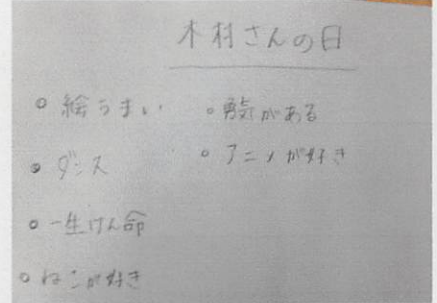 木村さんの日
○ 絵うまい
○ ダンス
○ 一生けん命
○ ねこが好き
○ 勇気がある
○ アニメが好き